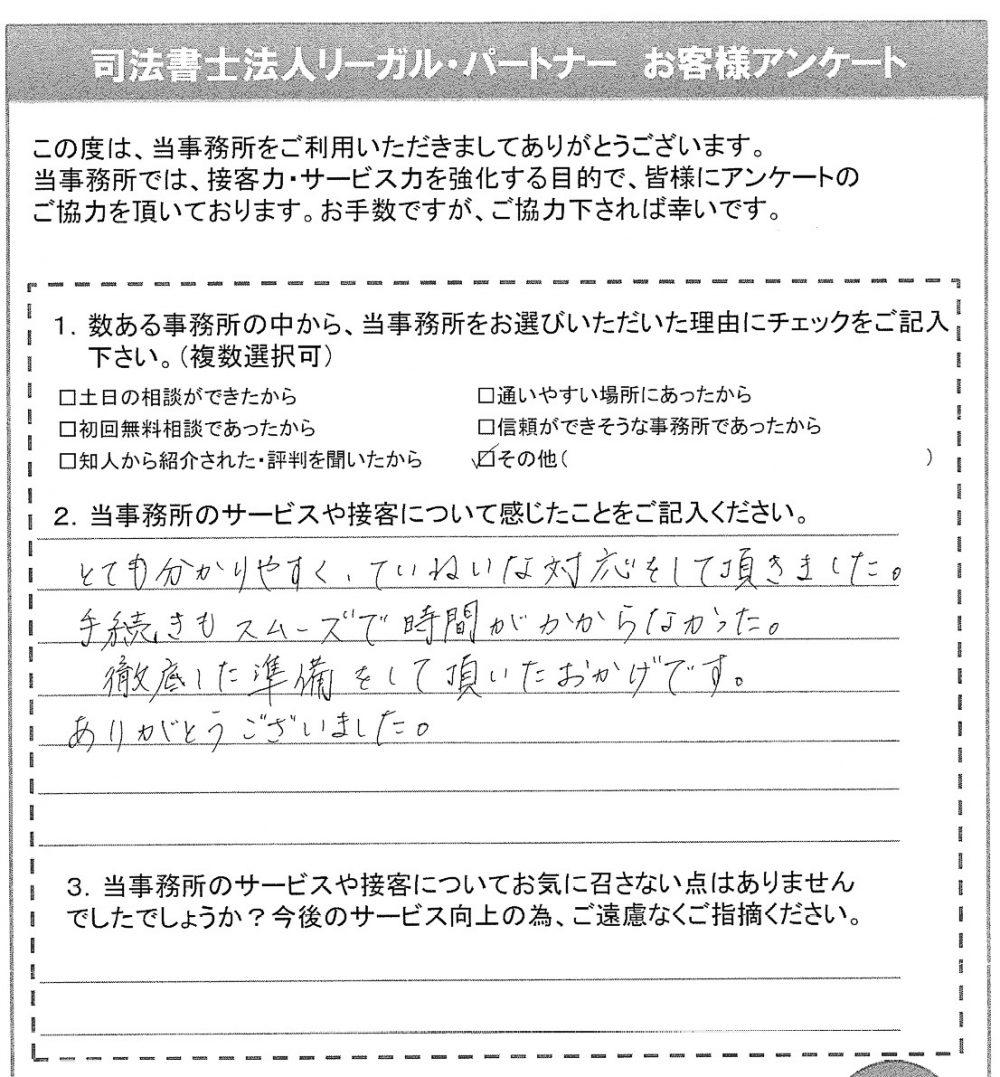 司法書士法人リーガル・パートナー　お客様アンケート
この度は、当事務所をご利用いただきましてありがとうございます。
当事務所では、接客力・サービス力を強化する目的で、皆様にアンケートの
ご協力を頂いております。お手数ですが、ご協力下されば幸いです。
1. 数ある事務所の中から、当事務所をお選びいただいた理由にチェックをご記入
下さい。（複数選択可）
□土日の相談ができたから　□通いやすい場所にあったから
□初回無料相談であったから　□信頼ができそうな事務所であったから
□知人から紹介された・評判を聞いたから　☑その他（　）
2. 当事務所のサービスや接客について感じたことをご記入ください。
とても分かりやすく、ていねいな対応をして頂きました。
手続きもスムーズで時間がかからなかった。
徹底した準備をして頂いたおかげです。
ありがとうございました。
3. 当事務所のサービスや接客についてお気に召さない点はありません
でしたでしょうか？今後のサービス向上の為、ご遠慮なくご指摘ください。